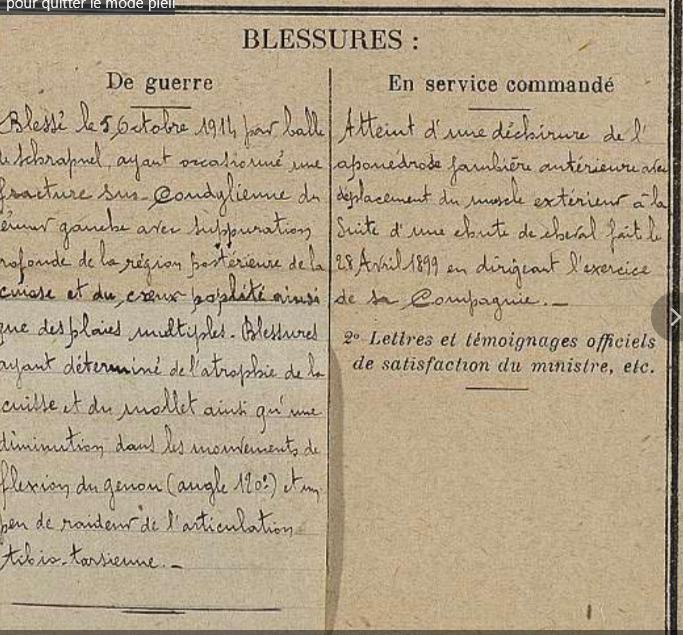 pour quitter le mode plei
BLESSURES :
De guerre
Blessé le 5 Octobre 1914 par balle
de schrapnel, ayant occasionné une
fracture sus-Condylienne du
fémur gauche avec suppuration
profonde de la région postérieure de la
cuisse et du creux poplité ainsi
que des plaies multiples. Blessures
ayant déterminé de l'atrophie de la
cuisse et du mollet ainsi qu'une
diminution dans les mouvements de
flexion du genou (angle 120°) et un
peu de raideur de l'articulation
tibio-tarsienne._
En service commandé
Atteint d'une déchirure de l'
aponévrose jambière antérieure avec
déplacement du muscle extérieur à la
Suite d'une chute de cheval fait le
28 Avril 1899 en dirigeant l'exercice
de sa Compagnie._
2° Lettres et témoignages officiels
de satisfaction du ministre, etc.